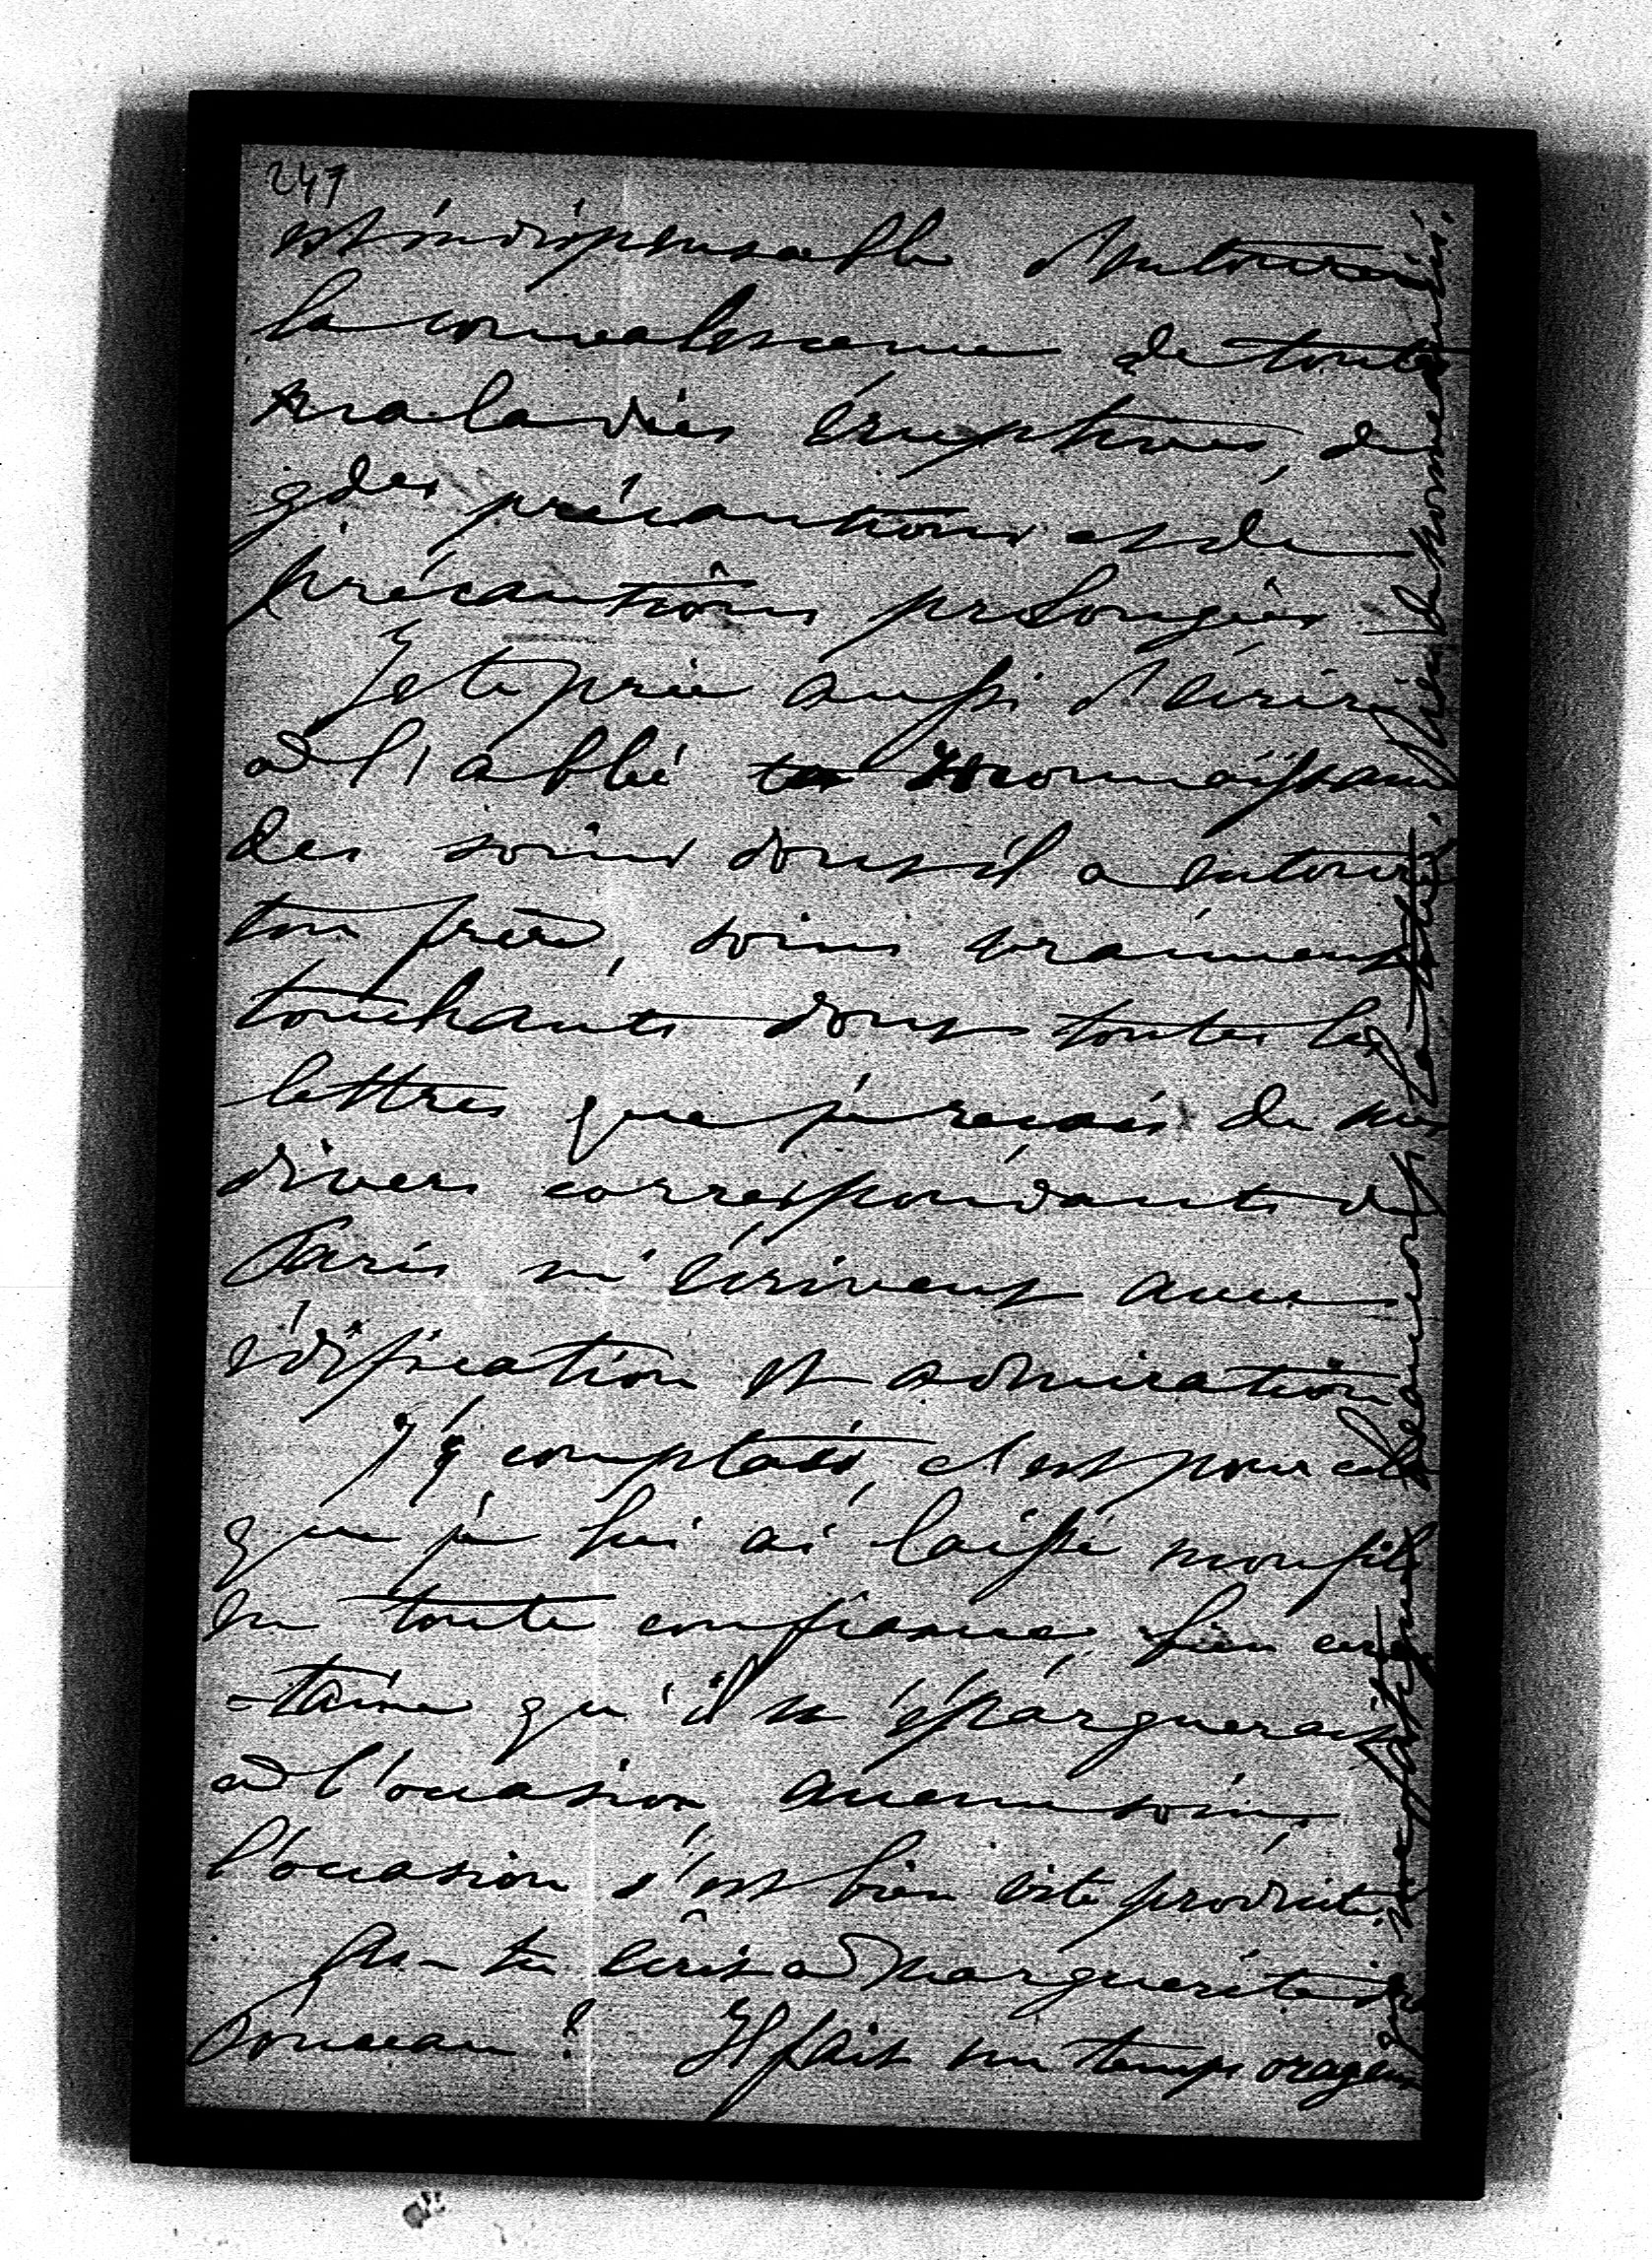 247
est indispensable d'entourer
la convalescence de toutes
maladies éruptives, de
gdes précautions et de
précautions prolongées.
Je te prie aussi d'écrire
à l'abbé ta reconnaissance
des soins dont il a entouré
ton frère, soins vraiment
touchants dont toutes les
lettres que je reçois de mes
divers correspondants de
Paris m'écrivent avec
édification et admiration
J'y comptais, c'est pour cela
que je lui ai laissé mon fils
en toute confiance, bien cer
-taine qu'il n'épargnerait
à l'occasion, aucun soin.
l'occasion s'est bien vite produite.
As-tu écrit à Marguerite
? Il fait un temps orageux
qui me fatigue beaucoup la tête. Rien de nouveau ici.